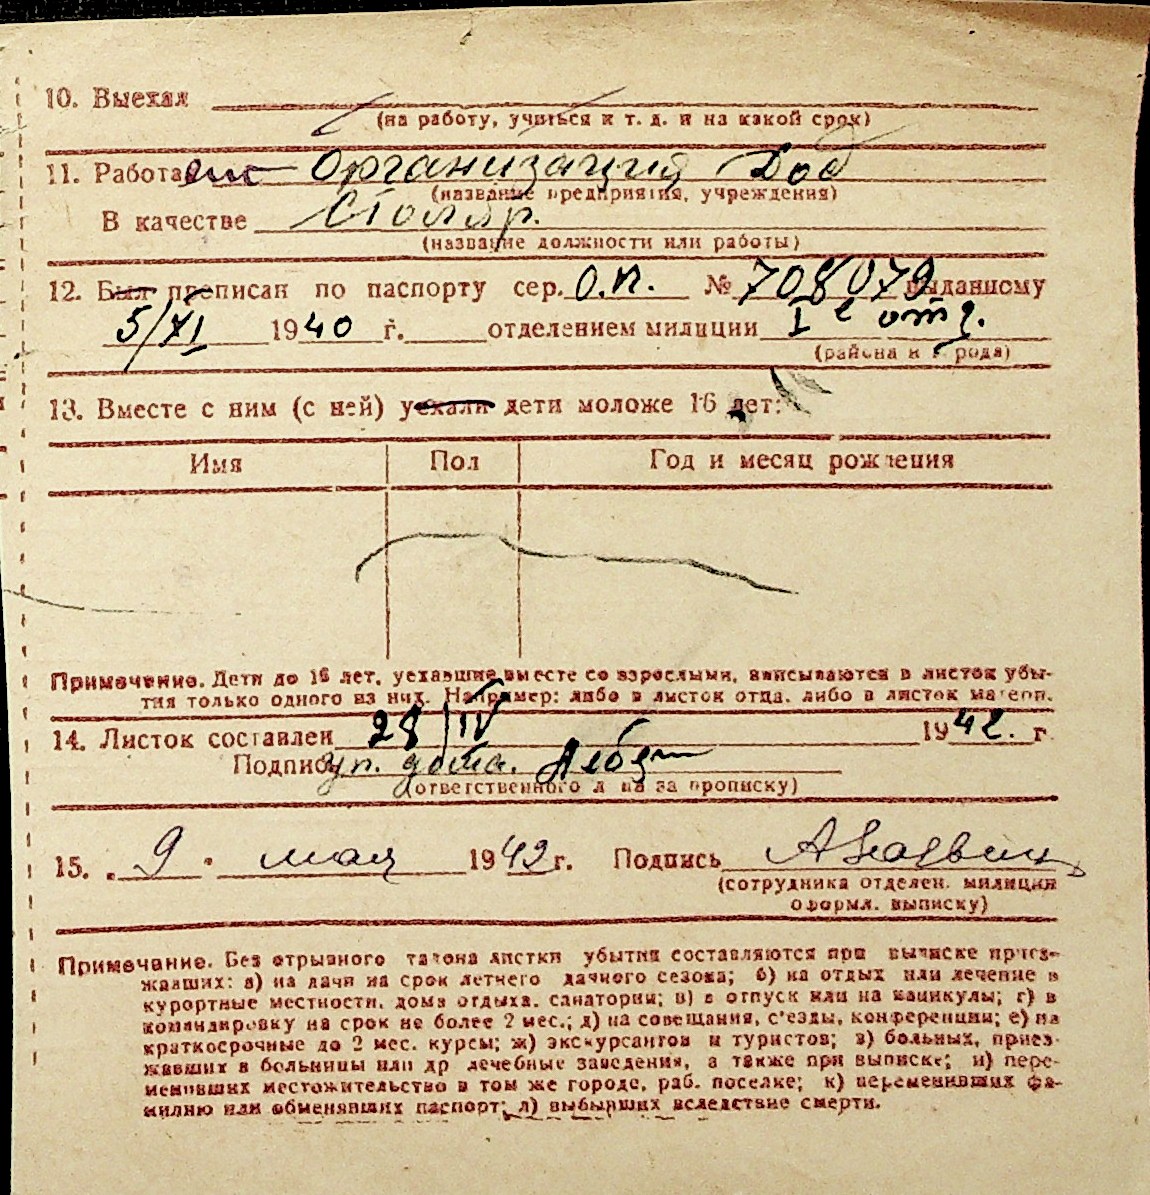 10. Выехал
(на работу, учиться и т. д. и на какой срок)
11. Работа организация
(название предприятия, учреждения)
В качестве столяр.
(название должности или работы)
12. Был прописан по паспорту сер. О.П. № 708079 выданному
5/VI 1940 г. отделением милиции I е отд.
(района и города)
13. Вместе с ним (с ней) уехали дети моложе 16 лет:
Имя Пол Год и месяц рождения
Примечание. Дети до 16 лет, уехавшие вместе со взрослыми, вписываются в листок убы-
тия только одного из них. Например: либо в листок отца, либо в листок матери.
14. Листок составлен 28/IV 1942. г.
Подпись уп. дома.
(ответственного л на за прописку)
15. „9 " мая 1942 г. Подпись
(сотрудника отделен. милиции
оформл. выписку)
Примечание. Без отрывного талона листки убытия составляются при выписке приез-
жавших: а) на дачи на срок летнего дачного сезона; б) на отдых или лечение в
курортные местности, дома отдыха, санатории; в) в отпуск или на каникулы; г) в
командировку на срок не более 2 мес.; д) на совещания, с'езды, конференции; е) на
краткосрочные до 2 мес. курсы; ж) экскурсантов и туристов; з) больных, приез-
жавших в больницы или др лечебные заведения, а также при выписке; и) пере-
менивших местожительство в том же городе, раб. поселке; к) переменивших фа-
милию или обменявших паспорт; л) выбывших вследствие смерти.